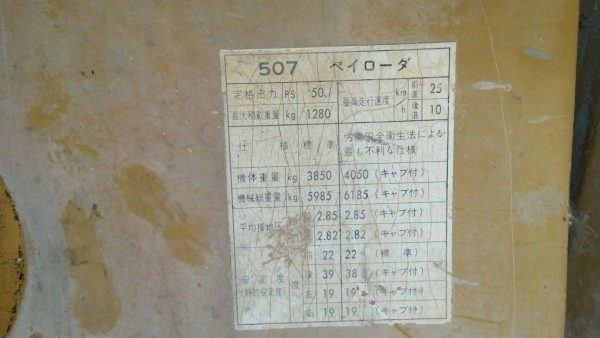 507 ペイローダ
定格出力 PS 50. 最高走行速度 km/h 前進 25
最大積載重量 kg 1280 後進 10
仕様 標準 労働安全衛生法による最も不利な仕様
機体重量 kg 3850 4050 (キャブ付)
機械総重量 kg 5985 6185 (キャブ付)
平均接地圧 2.85 2.85 (キャブ付)
2.82 2.82 (キャブ付)
安定度 度 前 22 22 (標準)
(静的安定度) 後 39 38 (キャブ付)
左 19 19 (キャブ付)
右 19 19 (キャブ付)